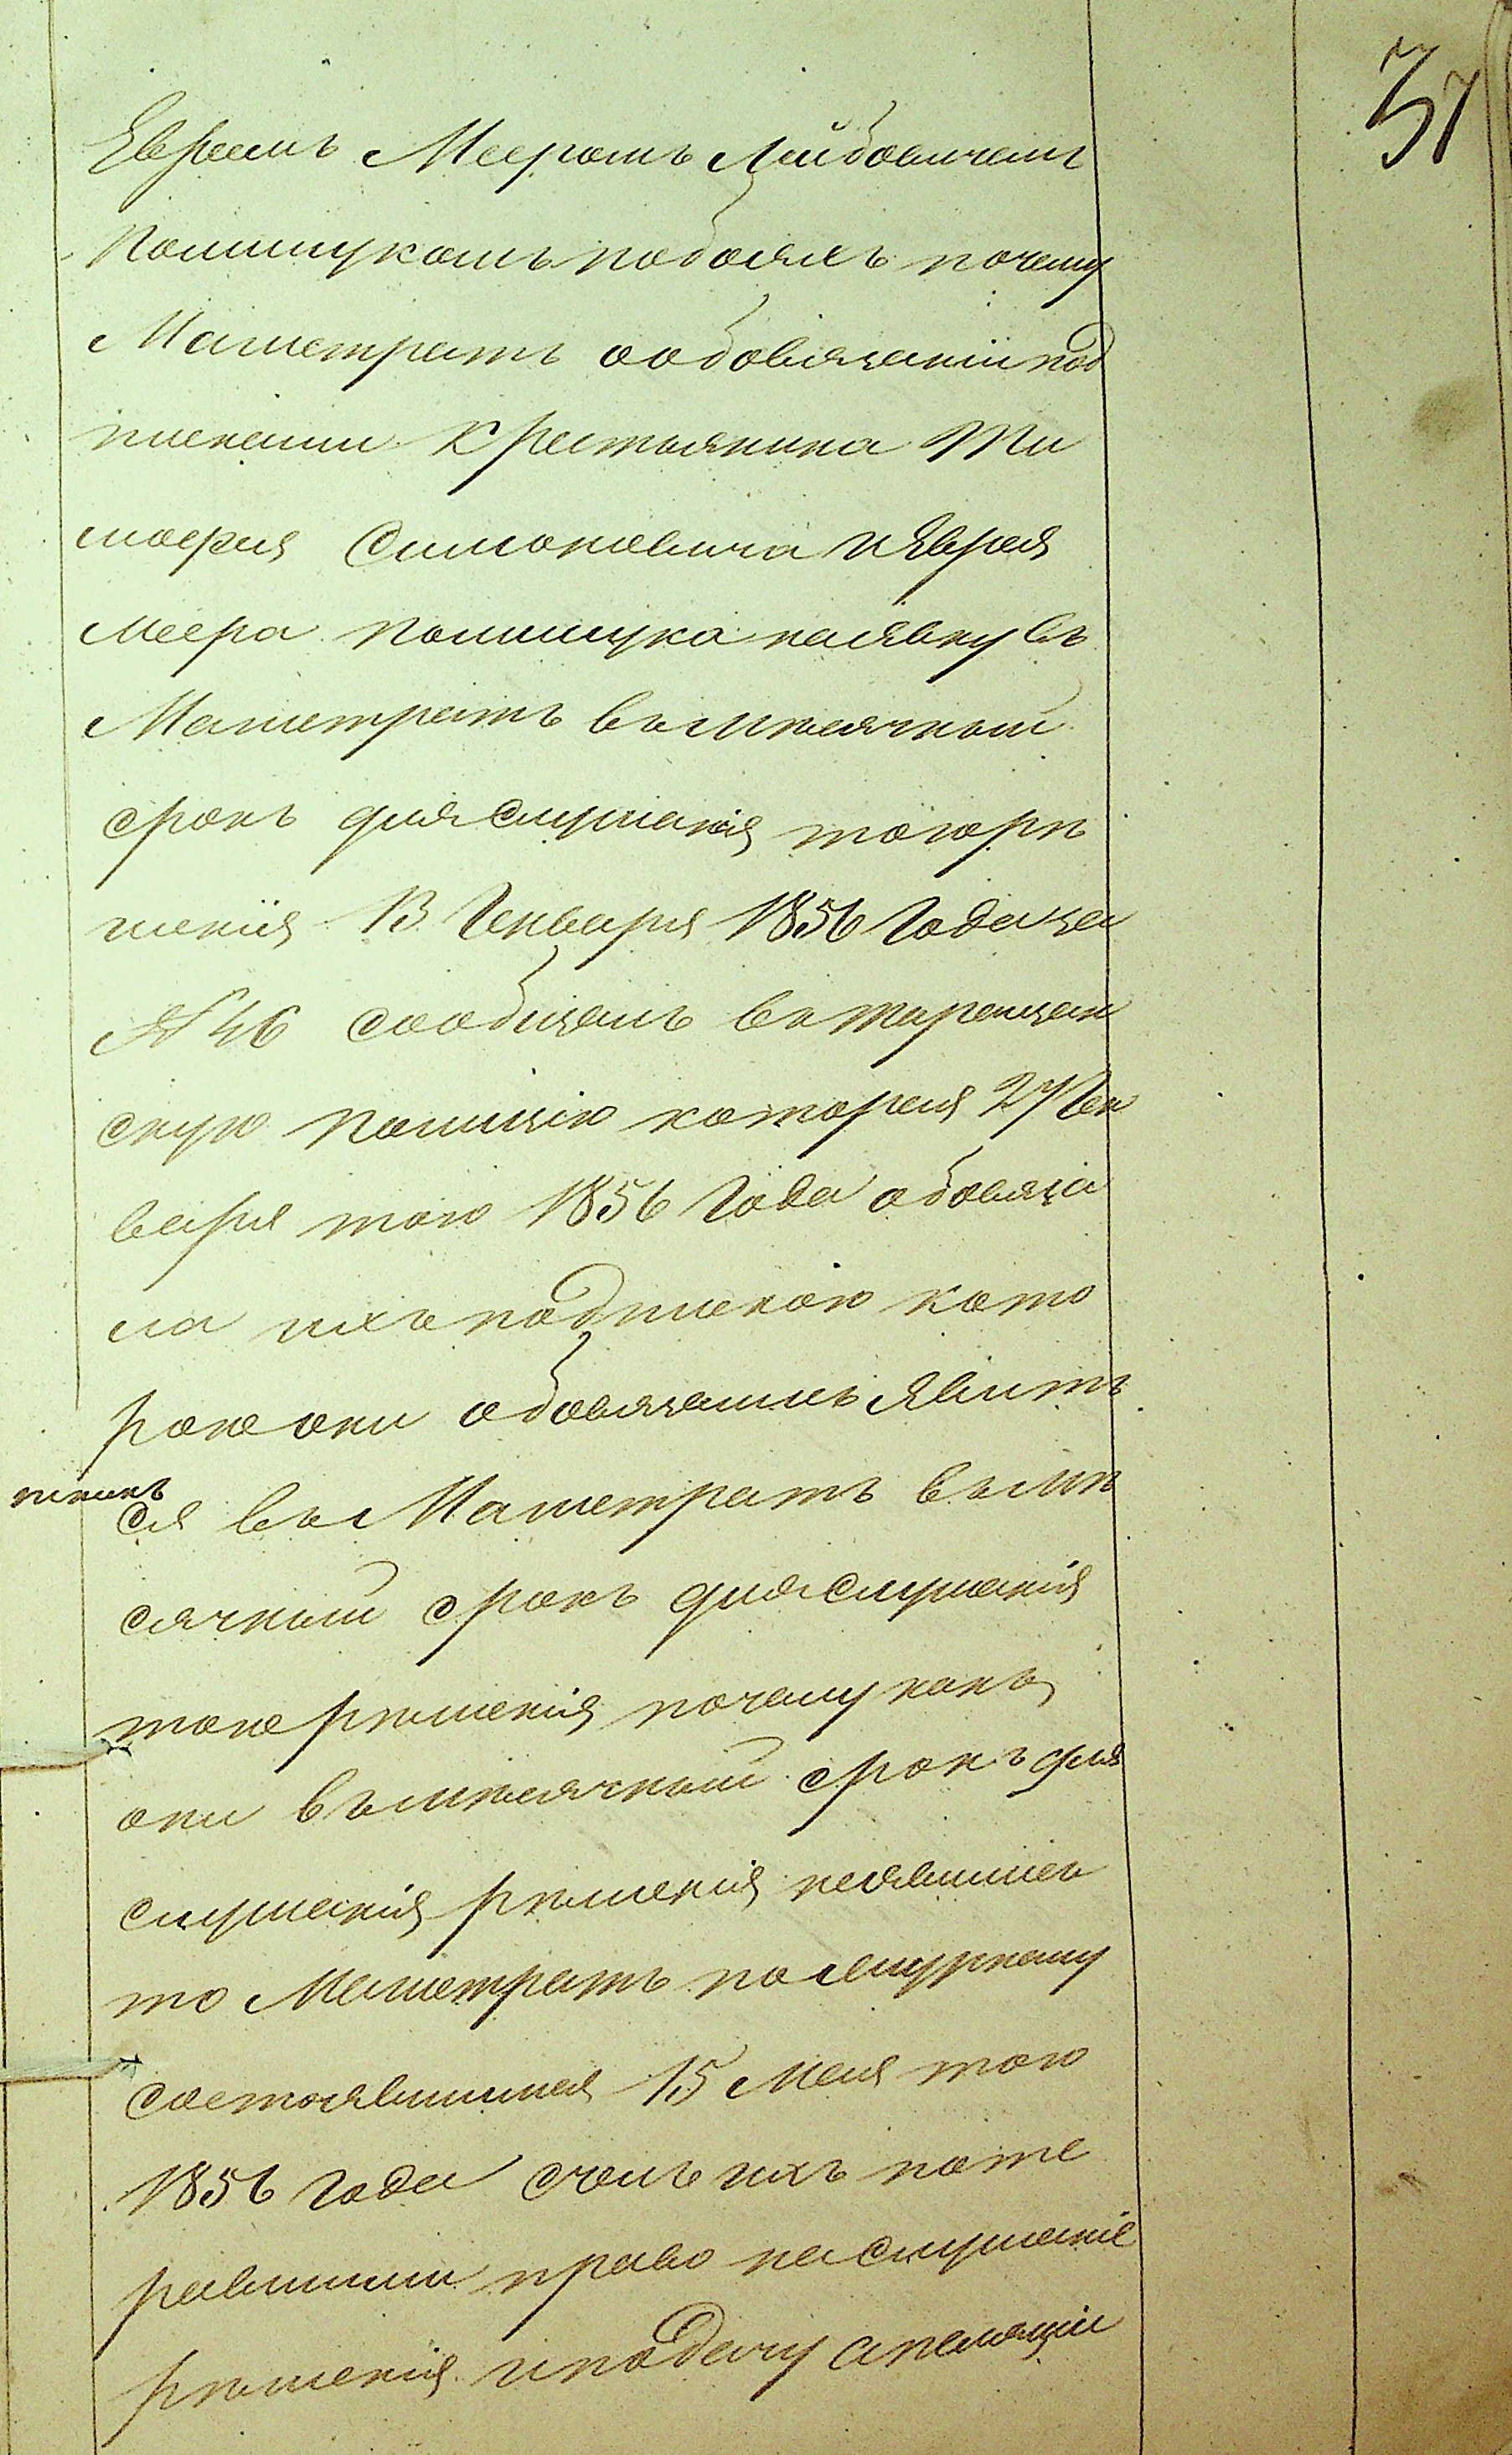 37
Евреемъ Мееромъ Лейбовичемъ
Полищукомъ побояхъ почему
Магистратъ о обовязаніи под
писками Крестьянина Ти
моѳея Симоновича и Еврея
Меера Полищука на явку въ
Магистратъ въ мѣсячный
срокъ для слушанія того рѣ
шенія 13 Генваря 1856 года за
№ 46 сообщалъ въ Таращан
скую Полицію которая 27 Ген
варя того 1856 года обовяза
ла ихъ подпискою кото
рою они обовязались явить
ся въ Магистратъ въ мѣ
сячный срокъ для слушанія
того рѣшенія почему какъ
они въ мѣсячный срокъ для
слушанія рѣшенія неявились
то Магистратъ по журналу
состоявшимся 15 Мая того
1856 года счелъ ихъ поте
рявшими право на слушаніе
рѣшенія и подачу апеляціи